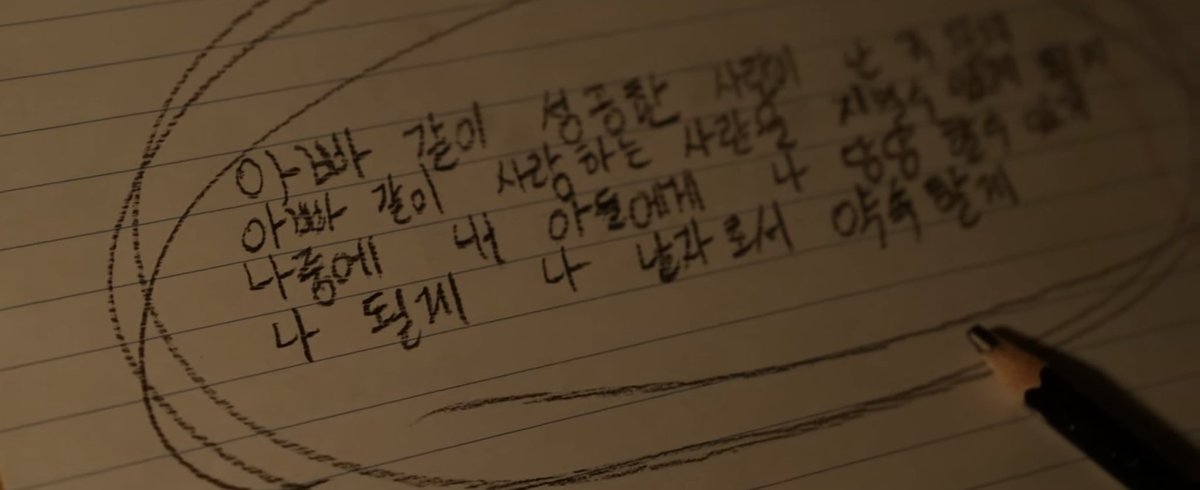 아빠 같이 성공한 사람이 난
아빠 같이 사랑하는 사람을 지킬수
나중에 내 아들에게 나 당당 할수
나 될게 나 남자로서 약속할게